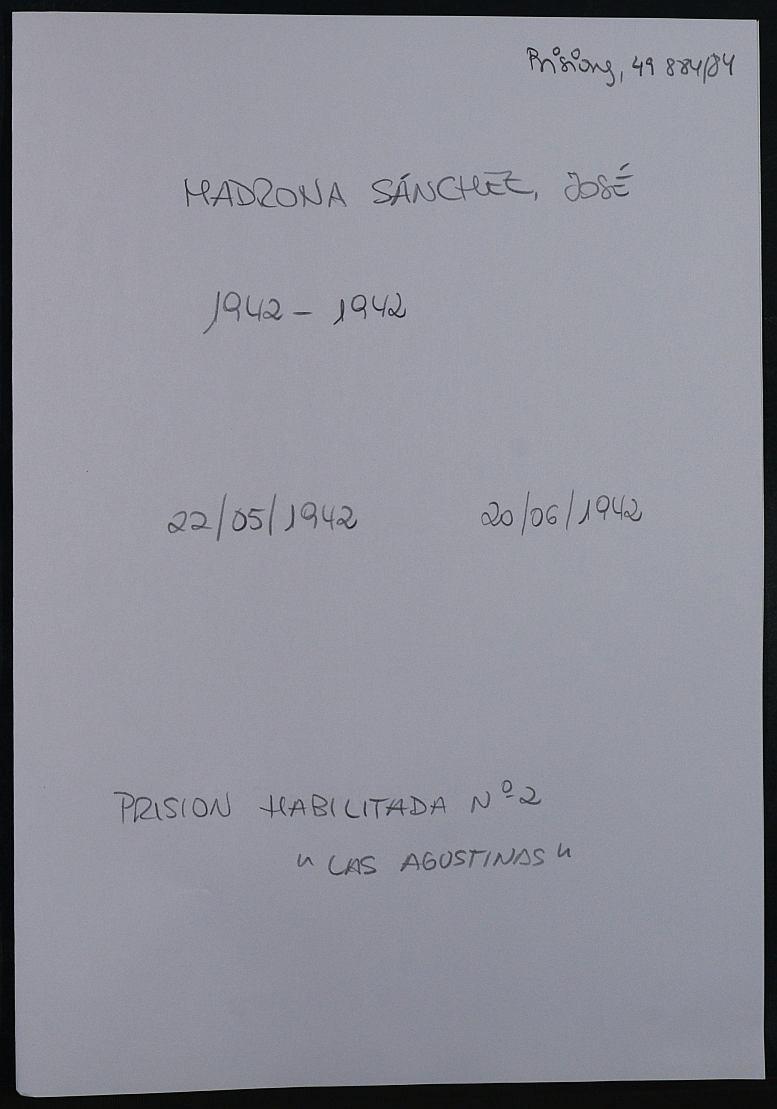 Prisions, 49 884/84
MADRONA SÁNCHEZ, JOSÉ
1942 - 1942
22/05/1942 20/06/1942
PRISION HABILITADA Nº 2
"LAS AGUSTINAS"